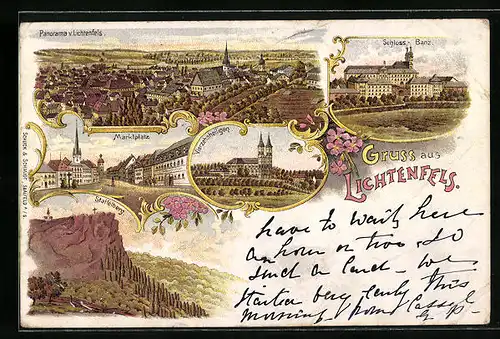 Panorama v. Lichtenfels.
Schloss - Banz.
Marktplatz
Vierzehnheiligen
Staffelberg
Gruss aus
LICHTENFELS.
have to wait here
an hour or two. So
send a card - we
started very early this
morning from Cassel